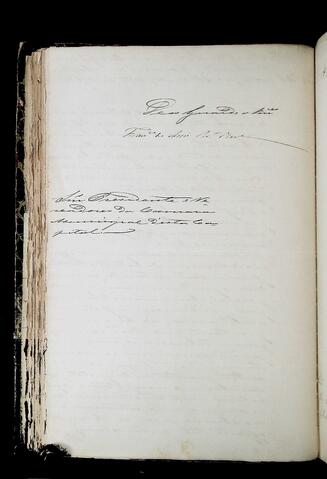 Deos Guarde a V.
Fran.co de Assis
Snr. Presidente e Ve
readores da Camara
Municipal d'esta Ca
pital.